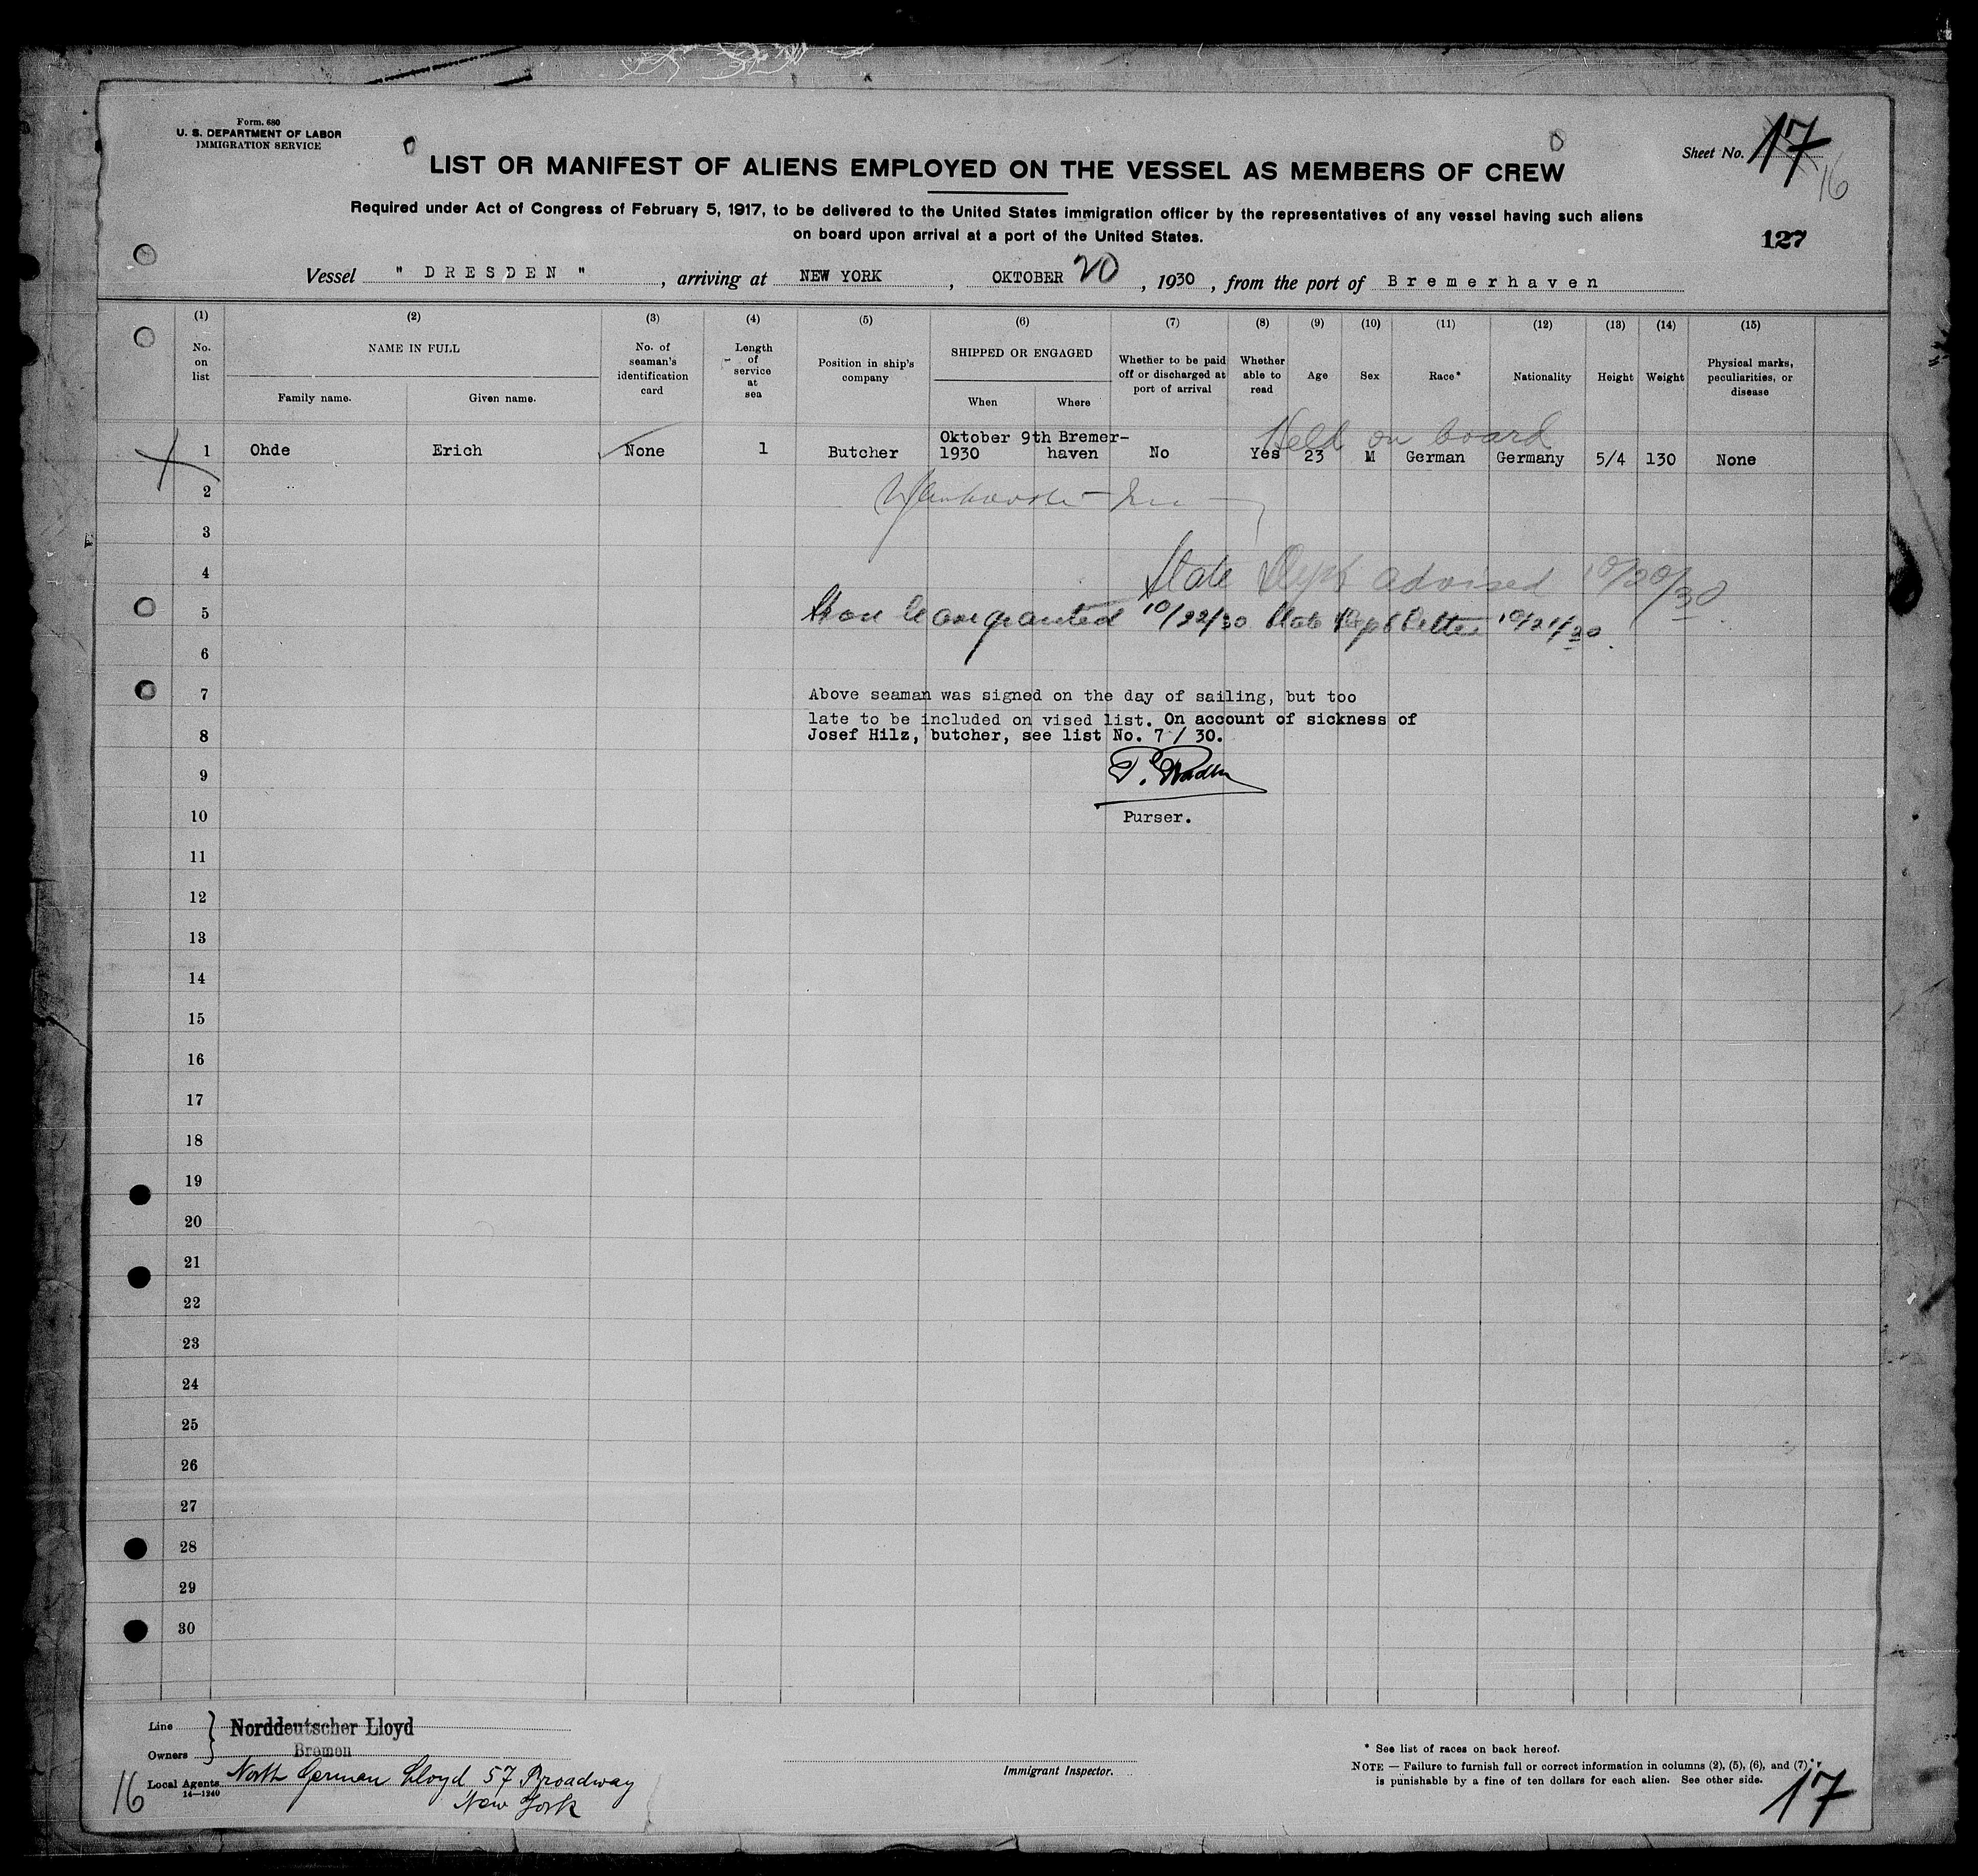 Form. 680
U. S. DEPARTMENT OF LABOR
IMMIGRATION SERVICE
LIST OR MANIFEST OF ALIENS EMPLOYED ON THE VESSEL AS MEMBERS OF CREW
Sheet No. 17
16
Required under Act of Congress of February 5, 1917, to be delivered to the United States immigration officer by the representatives of any vessel having such aliens
on board upon arrival at a port of the United States.
127
Vessel " DRESDEN " , arriving at NEW YORK , OKTOBER 20 , 1930 , from the port of Bremerhaven
(1) (2) (3) (4) (5) (6) (7) (8) (9) (10) (11) (12) (13) (14) (15)
No. on list
NAME IN FULL
Family name. Given name.
No. of seaman's identification card
Length of service at sea
Position in ship's company
SHIPPED OR ENGAGED
When Where
Whether to be paid off or discharged at port of arrival
Whether able to read
Age
Sex
Race*
Nationality
Height
Weight
Physical marks, peculiarities, or disease
Held on board
1 Ohde Erich None 1 Butcher Oktober 9th 1930 Bremer-haven No Yes 23 M German Germany 5/4 130 None
2
3
4 State Dept advised 10/20/30
5 granted 10/22/30 State Dept Letter 10/21/30.
6
7 Above seaman was signed on the day of sailing, but too
late to be included on vised list. On account of sickness of
8 Josef Hilz, butcher, see list No. 7 / 30.
9
10 Purser.
11
12
13
14
15
16
17
18
19
20
21
22
23
24
25
26
27
28
29
30
Line
Owners
Norddeutscher Lloyd
Bremen
Local Agents North German Lloyd 57 Broadway
New York
14—1240
16
Immigrant Inspector.
* See list of races on back hereof.
NOTE — Failure to furnish full or correct information in columns (2), (5), (6), and (7)
is punishable by a fine of ten dollars for each alien. See other side.
17